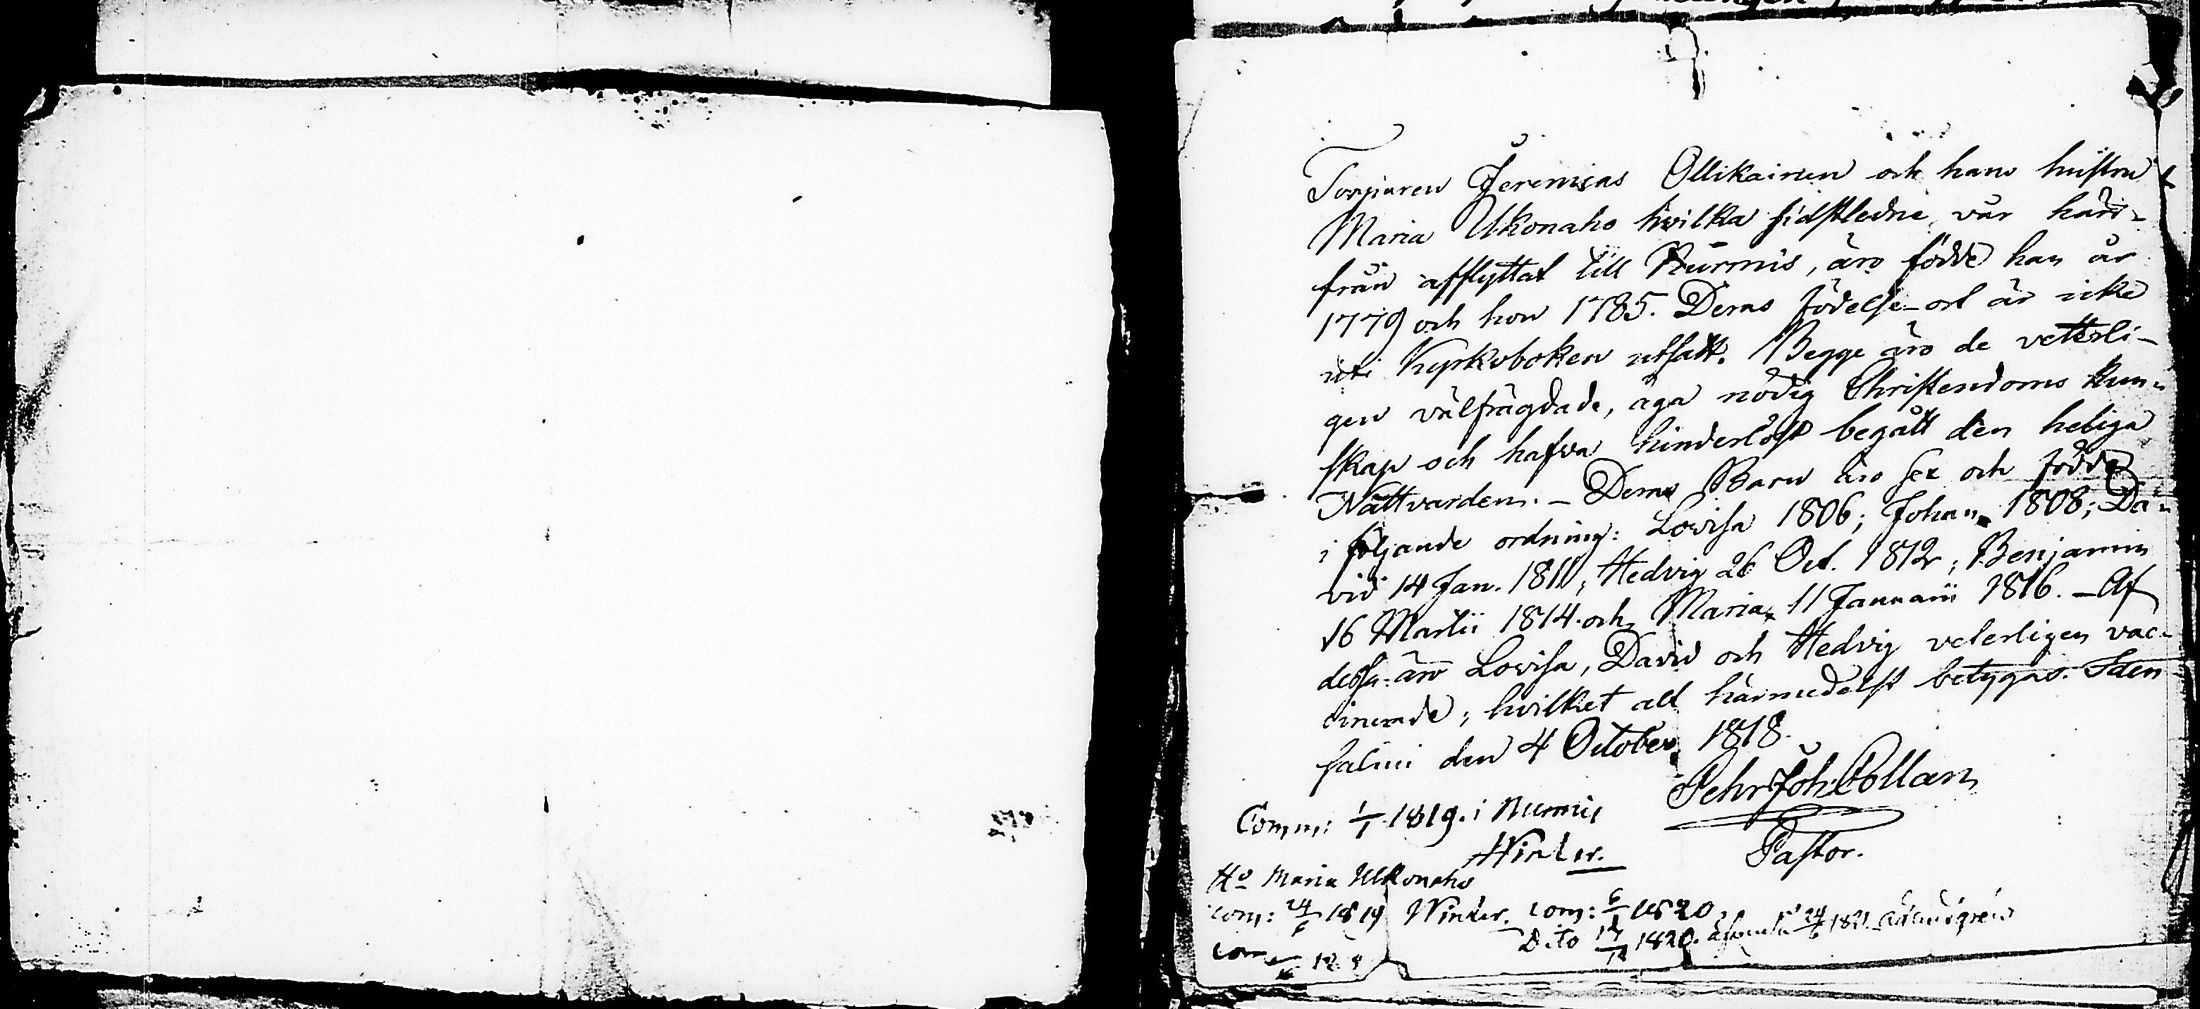 Torparen Jeremias Ollikainen och hans hustru
Maria Ukonaho hvilka sidstledne vår häri-
från afflyttat till Nurmis, äro födde han år
1779 och hon 1785. Deras födelse-ort är icke
uti Kyrkoboken utsatt. Begge äro de vetterli-
gen välfrägdade, äga nödig Christendoms kun-
skap och hafva hinderlöst begått den heliga
Nattvarden. – Deras Barn äro sex och födde
i följande ordning: Lovisa 1806; Johan 1808; Da-
vid 14 Jan. 1811; Hedvig 26 Oct. 1812; Benjamin
16 Martii 1814 och Maria 11 Januarii 1816. – Af
dessa äro Lovisa, David och Hedvig veterligen vac-
cinerade; hvilket alt härmedelst betygas. Iden-
salmi den 4 October 1818.
Pehr Joh: Collan
Pastor.
Comm: 1/1 1819. i Nurmis
Winter.
Ho Maria Ukonaho
com: 24/6 1819 Winter. com: 6/1 1820
Dito 1820. 24/6 1821.
com